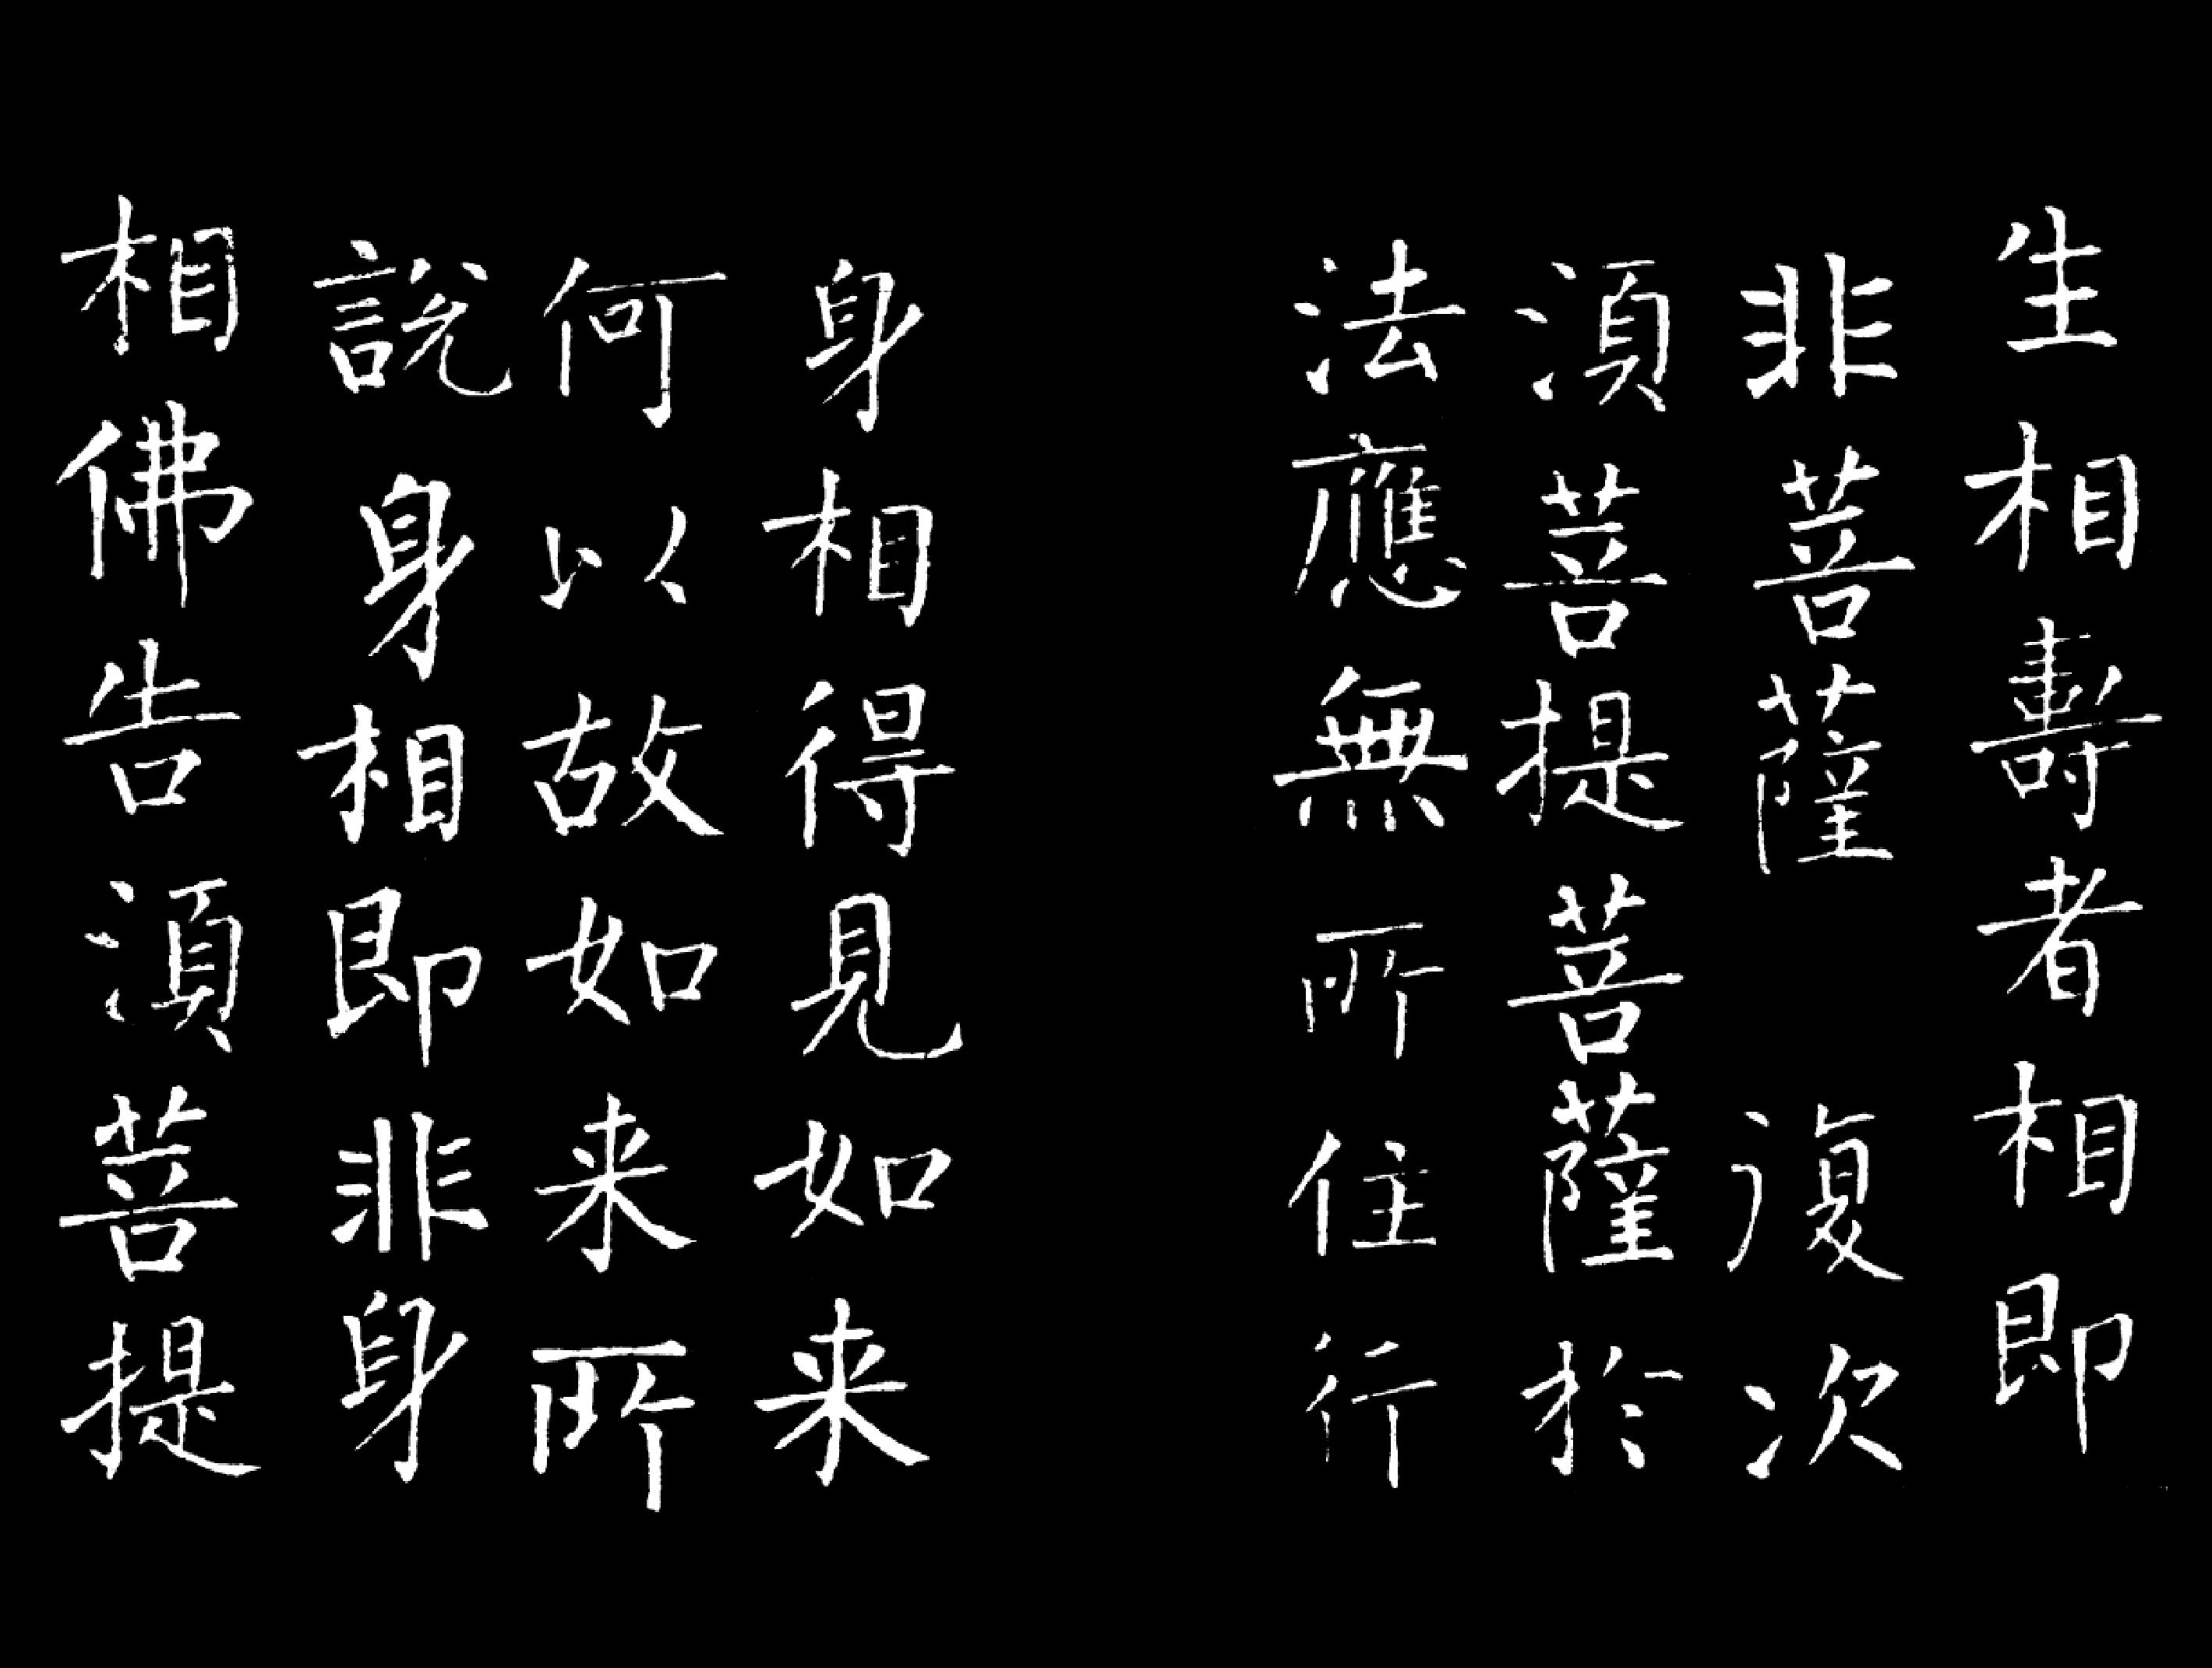 生相壽者相即
非菩薩 復次
湏菩提菩薩於
法應無所住行
身相得見如来
何以故如来所
說身相即非身
相佛告湏菩提